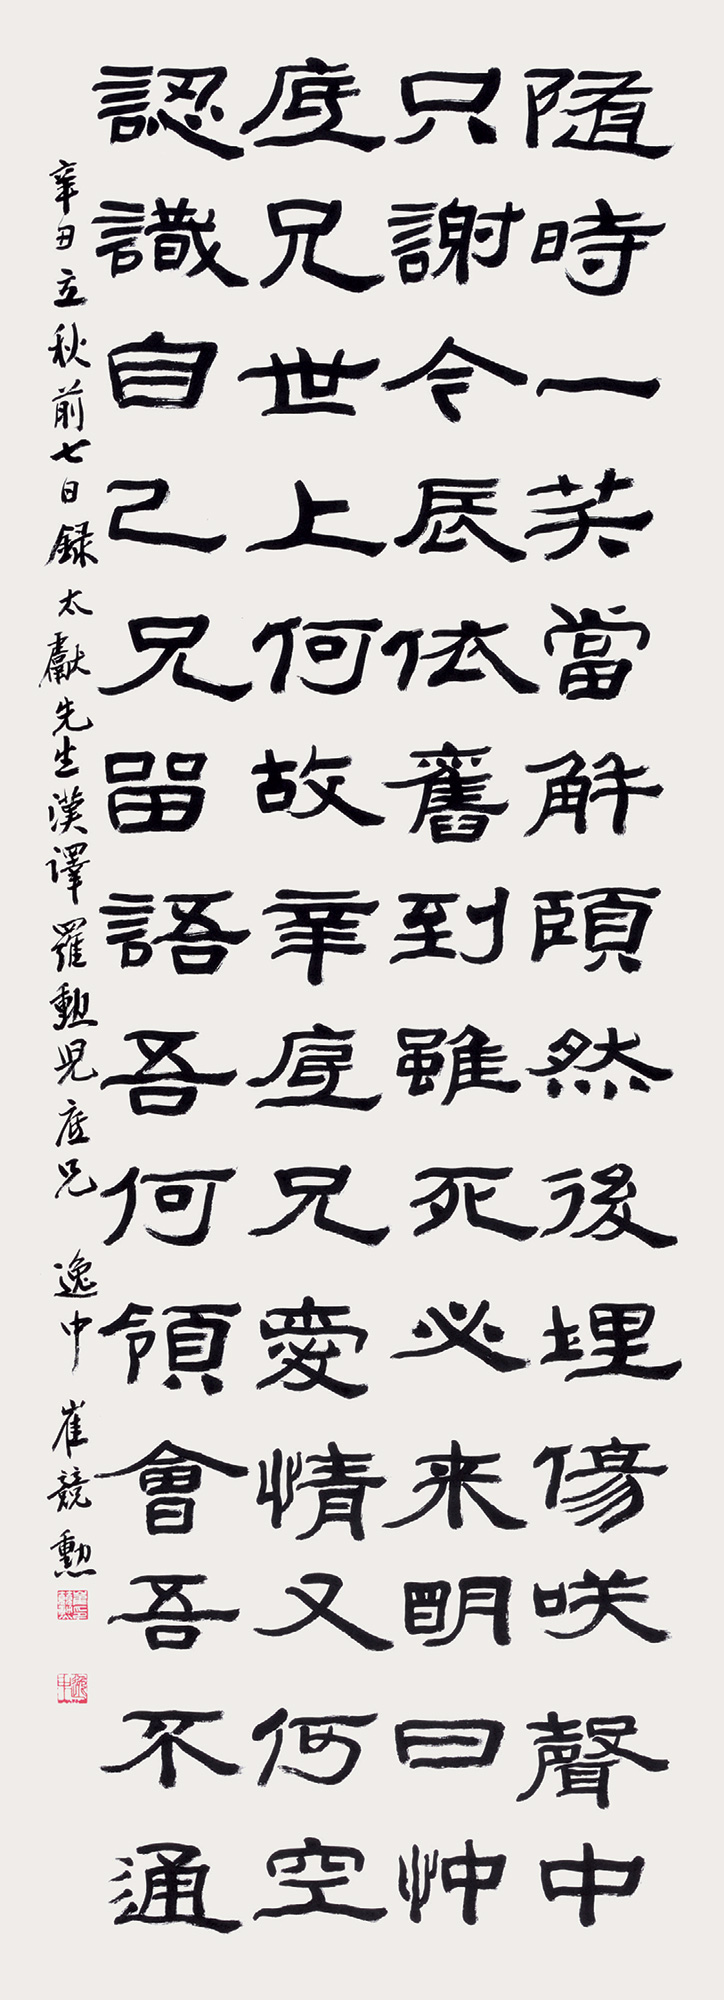 随時一笑當解頤然後埋傷咲聲中
只謝今辰依舊到雖死必来明日忡
底兄世上何故辛底兄愛情又何空
認識自己兄留語吾何領會吾不通
辛丑立秋前七日録太獻先生漢譯羅勳児底兄 逸中 崔競勳
逸中